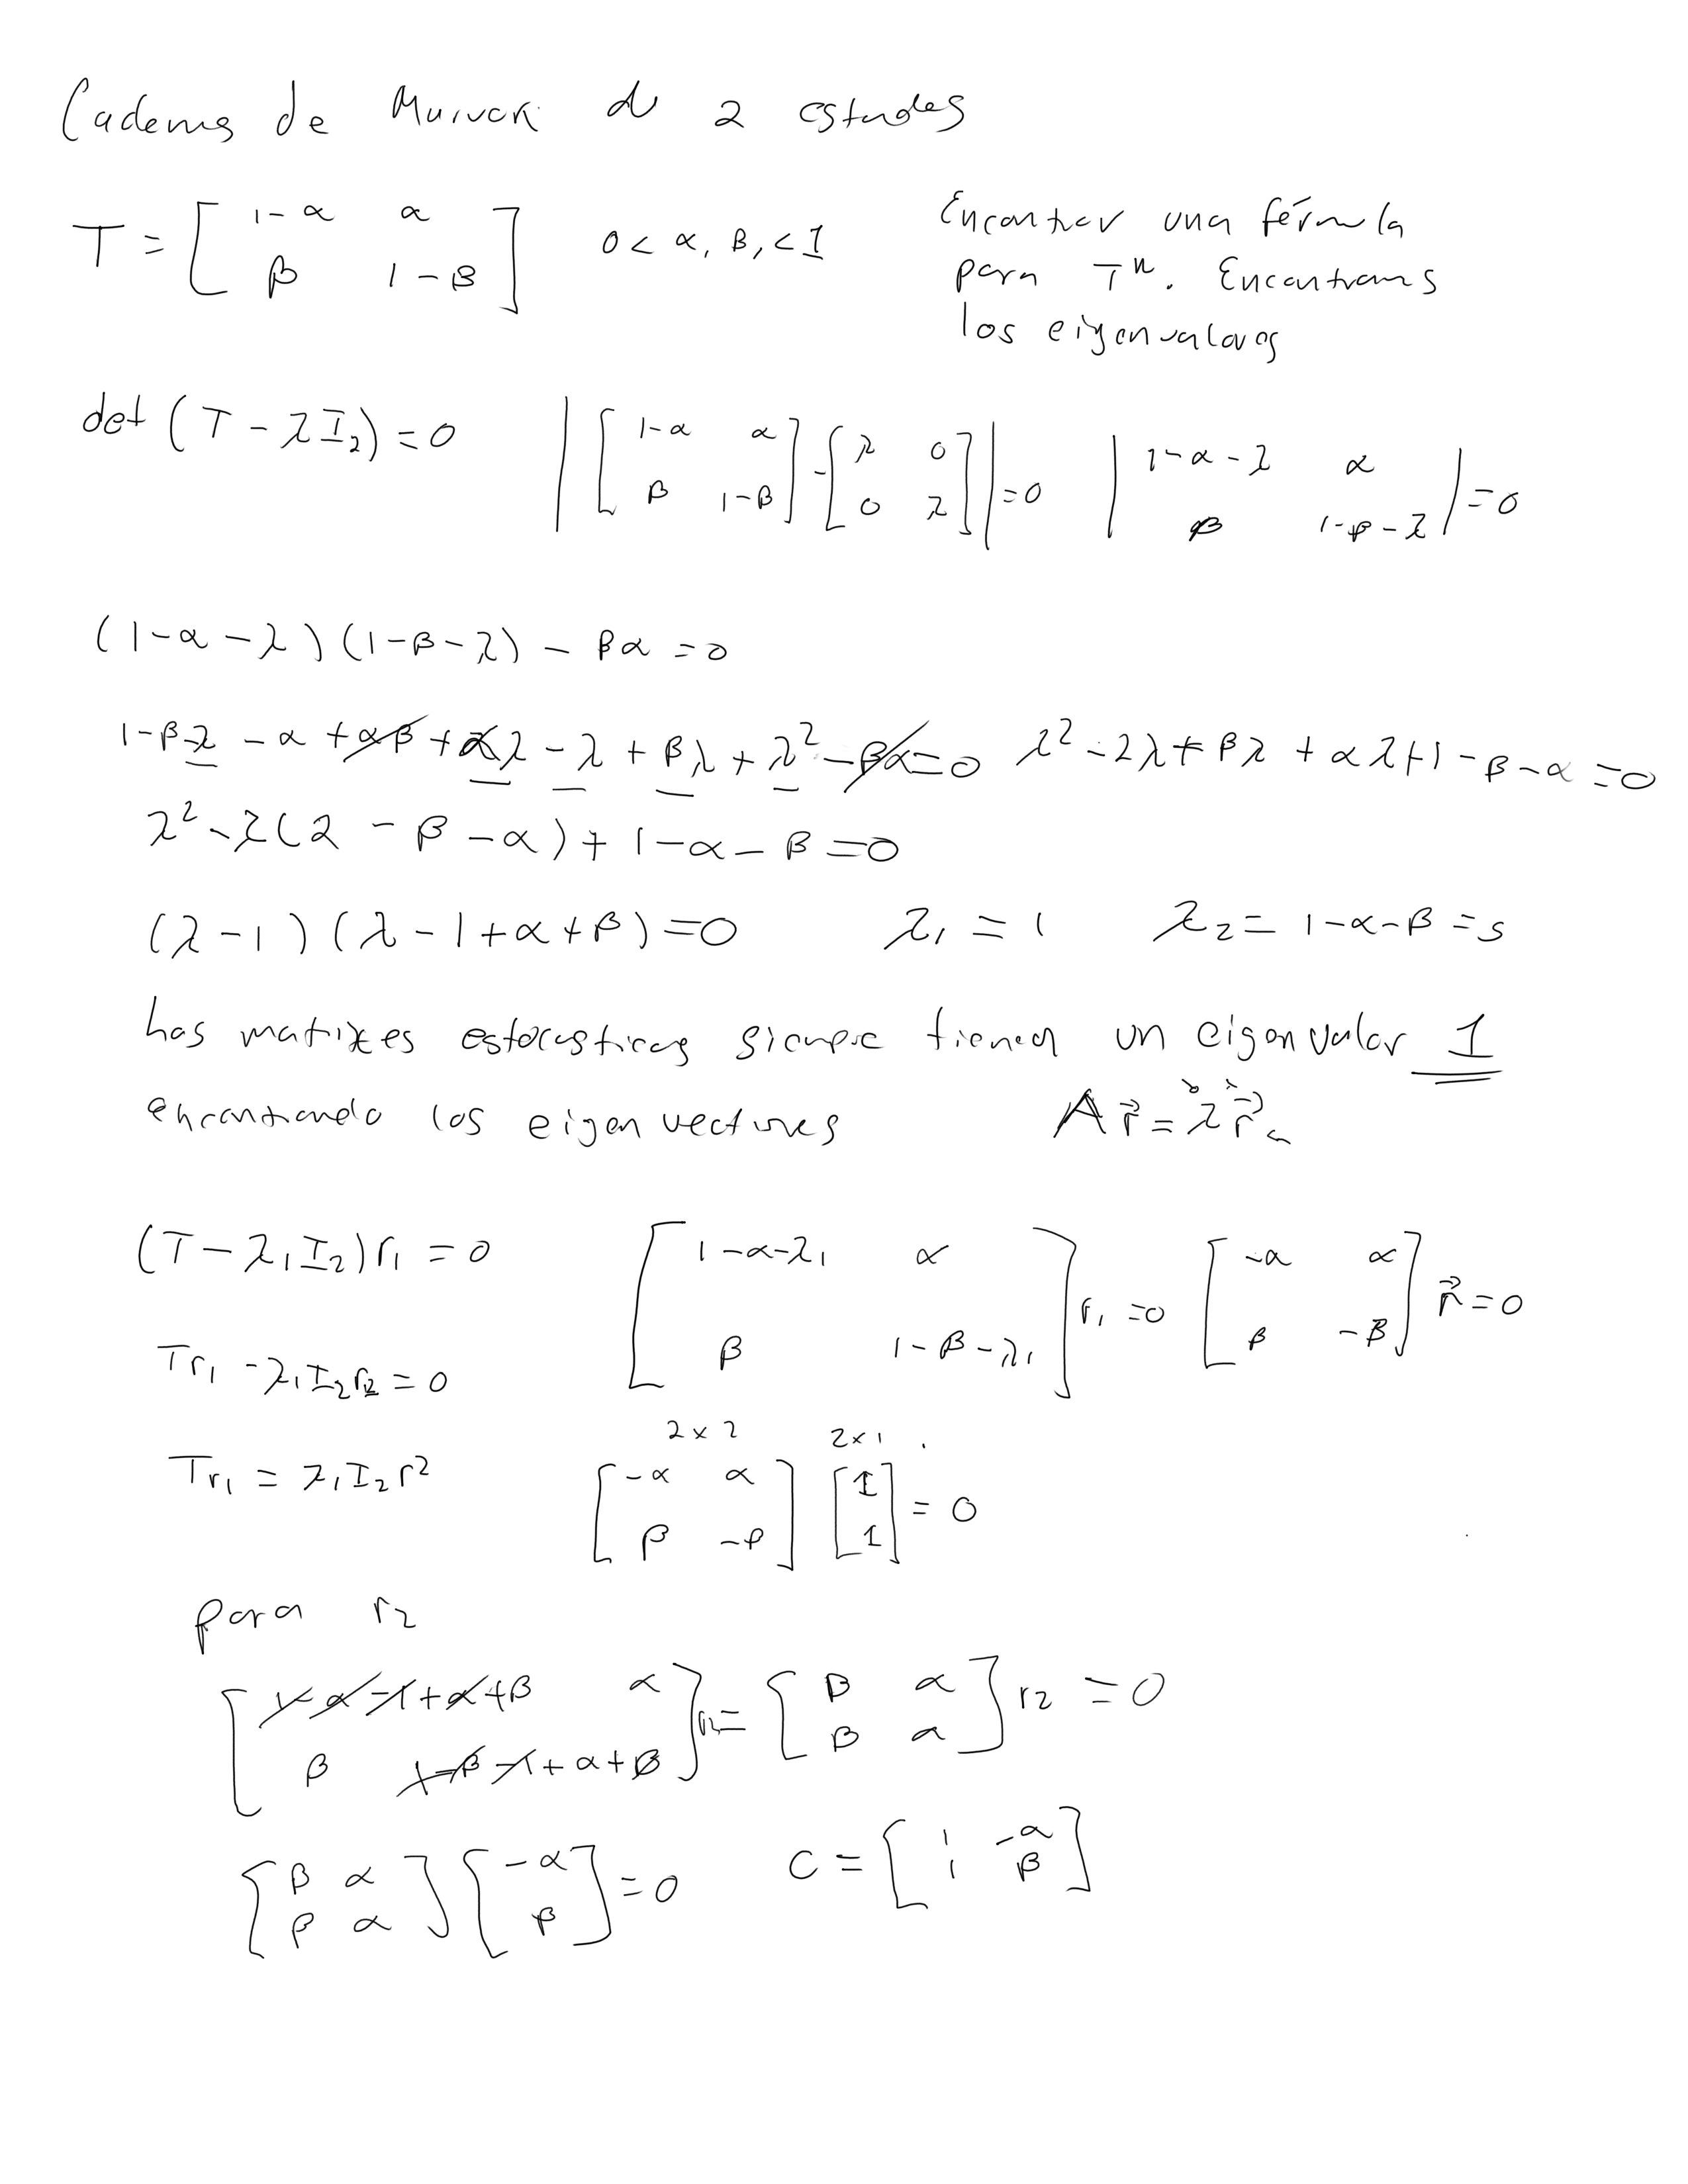 Cadenas de Marvok de 2 estados
T = [ 1-α α ; β 1-β ] 0 < α, β, < 1
Encontrar una fórmula
para Tⁿ. Encontramos
los eigenvalores
det (T - λI₂) = 0 | [ 1-α α ; β 1-β ] - [ λ 0 ; 0 λ ] | = 0 | 1-α-λ α ; β 1-β-λ | = 0
(1-α-λ)(1-β-λ) - βα = 0
1-β-λ - α + αβ + αλ - λ + βλ + λ² - βα = 0 λ² - 2λ + βλ + αλ + 1 - β - α = 0
λ² - λ(2 - β - α) + 1 - α - β = 0
(λ-1)(λ - 1 + α + β) = 0 λ₁ = 1 λ₂ = 1-α-β = s
Las matrixes estocasticas siempre tienen un eigenvalor 1
encontrando los eigenvectores A r⃗ = λ r⃗
(T - λ₁I₂)r₁ = 0 [ 1-α-λ₁ α ; β 1-β-λ₁ ] r₁ = 0 [ -α α ; β -β ] r⃗ = 0
Tr₁ - λ₁I₂r₂ = 0
2x2 2x1
Tr₁ = λ₁I₂r² [ -α α ; β -β ] [ 1 ; 1 ] = 0
para r₂
[ 1-α-1+α+β α ; β 1-β-1+α+β ] r₂ = [ β α ; β α ] r₂ = 0
[ β α ; β α ] [ -α ; β ] = 0 C = [ 1 -α ; 1 β ]